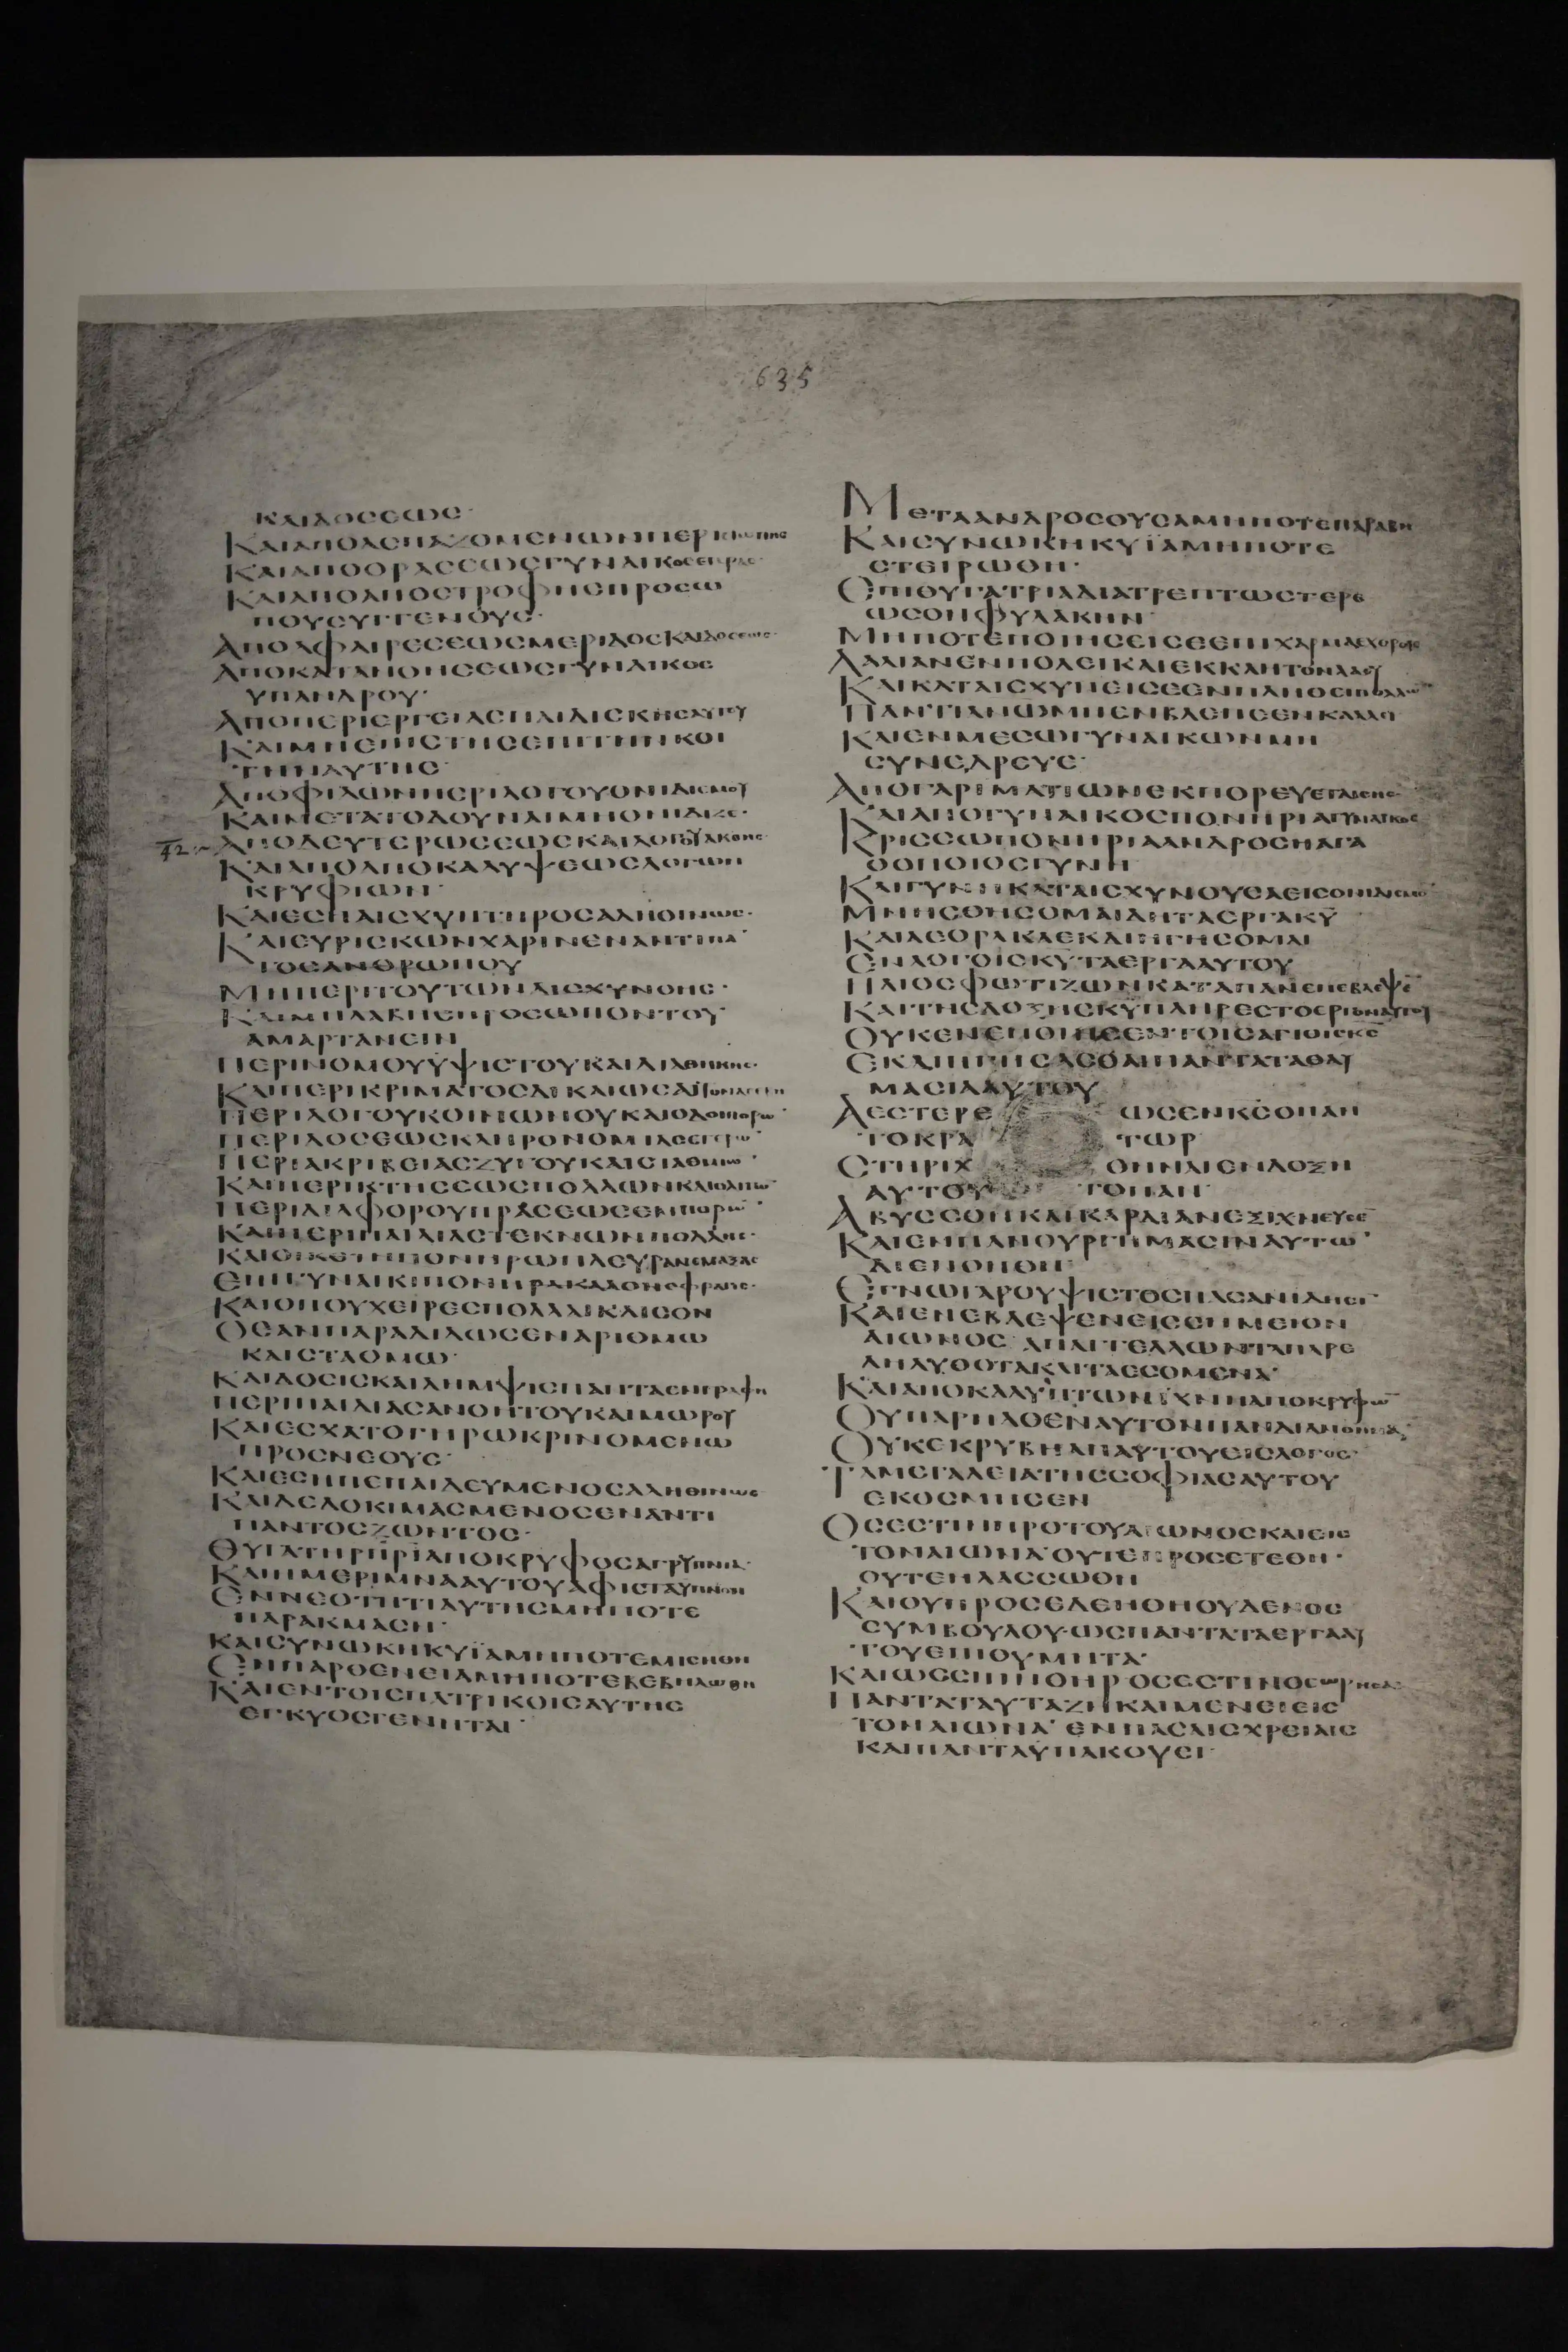 635
ΚΑΙΔΟСΕωС·
ΚΑΙΑΠΟΑСΠΑΖΟΜΕΝωΝΠΕΡΙСΙωΠΗС
ΚΑΙΑΠΟΟΡΑСΕωСΓΥΝΑΙΚΟСΕΤΑΙΡΑС·
ΚΑΙΑΠΟΑΠΟСΤΡΟΦΗСΠΡΟСω
ΠΟΥСΥΓΓΕΝΟΥС·
ΑΠΟΑΦΑΙΡΕСΕωСΜΕΡΙΔΟСΚΑΙΔΟСΕωС·
ΑΠΟΚΑΤΑΝΟΗСΕωСΓΥΝΑΙΚΟС
ΥΠΑΝΔΡΟΥ·
ΑΠΟΠΕΡΙΕΡΓΕΙΑСΠΑΙΔΙСΚΗСΑΥΤΟΥ
ΚΑΙΜΗΕΠΙСΤΗСΕΠΙΤΗΝΚΟΙ
ΤΗΝΑΥΤΗС·
ΑΠΟΦΙΛωΝΠΕΡΙΛΟΓΟΥΟΝΙΔΙСΜΟΥ
ΚΑΙΜΕΤΑΤΟΔΟΥΝΑΙΜΗΟΝΙΔΙΖΕ·
42 ΑΠΟΔΕΥΤΕΡωСΕωСΚΑΙΛΟΓΟΥΑΚΟΗС·
ΚΑΙΑΠΟΑΠΟΚΑΛΥΨΕωСΛΟΓωΝ
ΚΡΥΦΙωΝ·
ΚΑΙΕСΗΑΙСΧΥΝΤΗΡΟСΑΛΗΘΙΝωС·
ΚΑΙΕΥΡΙСΚωΝΧΑΡΙΝΕΝΑΝΤΙΠΑ
ΤΟСΑΝΘΡωΠΟΥ
ΜΗΠΕΡΙΤΟΥΤωΝΑΙСΧΥΝΘΗС·
ΚΑΙΜΗΛΑΒΗСΠΡΟСωΠΟΝΤΟΥ
ΑΜΑΡΤΑΝΕΙΝ
ΠΕΡΙΝΟΜΟΥΥΨΙСΤΟΥΚΑΙΔΙΑΘΗΚΗС·
ΚΑΙΠΕΡΙΚΡΙΜΑΤΟСΔΙΚΑΙωСΑΙΤΟΝΑСΕΒΗ
ΠΕΡΙΛΟΓΟΥΚΟΙΝωΝΟΥΚΑΙΟΔΟΙΠΟΡω·
ΠΕΡΙΔΟСΕωСΚΛΗΡΟΝΟΜΙΑСΕΤΕΡω·
ΠΕΡΙΑΚΡΙΒΕΙΑСΖΥΓΟΥΚΑΙСΤΑΘΜΙω·
ΚΑΙΠΕΡΙΚΤΗСΕωСΠΟΛΛωΝΚΑΙΟΛΙΓω
ΠΕΡΙΔΙΑΦΟΡΟΥΠΡΑСΕωСΕΜΠΟΡω·
ΚΑΙΠΕΡΙΠΑΙΔΙΑСΤΕΚΝωΝΠΟΛΛΗС·
ΚΑΙΟΙΚΕΤΗΠΟΝΗΡωΠΛΕΥΡΑΝΕΜΑΞΑΙ
ΕΠΙΓΥΝΑΙΚΙΠΟΝΗΡΑΚΑΛΟΝСΦΡΑΓΙС·
ΚΑΙΟΠΟΥΧΕΙΡΕСΠΟΛΛΑΙΚΛΙСΟΝ
ΟΕΑΝΠΑΡΑΔΙΔωСΕΝΑΡΙΘΜω
ΚΑΙСΤΑΘΜω·
ΚΑΙΔΟСΙСΚΑΙΛΗΜΨΙСΠΑΝΤΑΕΝΓΡΑΦΗ
ΠΕΡΙΠΑΙΔΙΑСΑΝΟΗΤΟΥΚΑΙΜωΡΟΥ
ΚΑΙΕСΧΑΤΟΓΗΡωΚΡΙΝΟΜΕΝω
ΠΡΟСΝΕΟΥС·
ΚΑΙΕСΗΠΕΠΑΙΔΕΥΜΕΝΟСΑΛΗΘΙΝωС
ΚΑΙΔΕΔΟΚΙΜΑСΜΕΝΟСΕΝΑΝΤΙ
ΠΑΝΤΟСΖωΝΤΟС·
ΘΥΓΑΤΗΡΠΡΙΑΠΟΚΡΥΦΟСΑΓΡΥΠΝΙΑ·
ΚΑΙΗΜΕΡΙΜΝΑΑΥΤΟΥΑΦΙСΤΑΥΠΝΟΝ
ΕΝΝΕΟΤΗΤΙΑΥΤΗСΜΗΠΟΤΕ
ΠΑΡΑΚΜΑСΗ·
ΚΑΙСΥΝωΚΗΚΥΪΑΜΗΠΟΤΕΜΙСΗΘΗ
ΕΝΠΑΡΘΕΝΕΙΑΜΗΠΟΤΕΒΕΒΗΛωΘΗ
ΚΑΙΕΝΤΟΙСΠΑΤΡΙΚΟΙСΑΥΤΗС
ΕΓΚΥΟСΓΕΝΗΤΑΙ·
ΜΕΤΑΑΝΔΡΟСΟΥСΑΜΗΠΟΤΕΠΑΡΑΒΗ
ΚΑΙСΥΝωΚΗΚΥΪΑΜΗΠΟΤΕ
СΤΕΙΡωΘΗ·
ΕΠΙΘΥΓΑΤΡΙΑΔΙΑΤΡΕΠΤωСΤΕΡΕ
ωСΟΝΦΥΛΑΚΗΝ·
ΜΗΠΟΤΕΠΟΙΗСΕΙСΕΕΠΙΧΑΡΜΑΕΧΘΡΟΙС
ΛΑΛΙΑΝΕΝΠΟΛΕΙΚΑΙΕΚΚΛΗΤΟΝΛΑΟΥ
ΚΑΙΚΑΤΑΙСΧΥΝΕΙСΕΕΝΠΛΗΘΕΙΠΟΛΛω
ΠΑΝΤΙΑΝωΜΗΕΝΒΛΕΠΕΕΝΚΑΛΛΙ
ΚΑΙΕΝΜΕСωΓΥΝΑΙΚωΝΜΗ
СΥΝΕΔΡΕΥΕ·
ΑΠΟΓΑΡΙΜΑΤΙωΝΕΚΠΟΡΕΥΕΤΑΙСΗС·
ΚΑΙΑΠΟΓΥΝΑΙΚΟСΠΟΝΗΡΙΑΓΥΝΑΙΚΟС
ΚΡΙССωΠΟΝΗΡΙΑΑΝΔΡΟСΗΑΓΑ
ΘΟΠΟΙΟСΓΥΝΗ
ΚΑΙΓΥΝΗΚΑΤΑΙСΧΥΝΟΥСΑΕΙСΟΝΙΔΙСΜΟ
ΜΝΗСΘΗСΟΜΑΙΔΗΤΑΕΡΓΑΚΥ
ΚΑΙΑΕΟΡΑΚΑΕΚΔΙΗΓΗСΟΜΑΙ
ΕΝΛΟΓΟΙСΚΥΤΑΕΡΓΑΑΥΤΟΥ
ΗΛΙΟСΦωΤΙΖωΝΚΑΤΑΠΑΝΕΠΕΒΛΕΨΕ
ΚΑΙΤΗСΔΟΞΗСΚΥΠΛΗΡΕСΤΟΕΡΓΟΝΑΥΤΟΥ
ΟΥΚΕΝΕΠΟΙΗСΕΝΤΟΙСΑΓΙΟΙСΚС
ΕΚΔΙΗΓΗСΑСΘΑΙΠΑΝΤΑΤΑΘΑΥ
ΜΑСΙΑΑΥΤΟΥ
ΑΕСΤΕΡΕ ωСΕΝΚСΟΠΑΝ
ΤΟΚΡΑ ΤωΡ
СΤΗΡΙΧ ΘΗΝΑΙΕΝΔΟΞΗ
ΑΥΤΟΥ ΤΟΠΑΝ·
ΑΒΥССΟΝΚΑΙΚΑΡΔΙΑΝΕΞΙΧΝΕΥСΕ
ΚΑΙΕΝΠΑΝΟΥΡΓΗΜΑСΙΝΑΥΤω
ΔΙΕΝΟΗΘΗ·
ΕΓΝωΓΑΡΟΥΨΙСΤΟСΠΑСΑΝΙΔΗСΙ
ΚΑΙΕΝΕΒΛΕΨΕΝΕΙССΗΜΕΙΟΝ
ΑΙωΝΟС·ΑΠΑΓΓΕΛΛωΝΤΑΠΑΡΕ
ΛΗΛΥΘΟΤΑΚΑΙΤΑΕСΟΜΕΝΑ·
ΚΑΙΑΠΟΚΑΛΥΠΤωΝΙΧΝΗΑΠΟΚΡΥΦω
ΟΥΠΑΡΗΛΘΕΝΑΥΤΟΝΠΑΝΔΙΑΝΟΗΜΑ
ΟΥΚΕΚΡΥΒΗΑΠΑΥΤΟΥΕΙСΛΟΓΟС·
ΤΑΜΕΓΑΛΕΙΑΤΗССΟΦΙΑСΑΥΤΟΥ
ΕΚΟСΜΗСΕΝ
ΟСΕСΤΙΝΠΡΟΤΟΥΑΙωΝΟСΚΑΙΕΙС
ΤΟΝΑΙωΝΑ·ΟΥΤΕΠΡΟСΕΤΕΘΗ·
ΟΥΤΕΗΛΑССωΘΗ
ΚΑΙΟΥΠΡΟСΕΔΕΗΘΗΟΥΔΕΝΟС
СΥΜΒΟΥΛΟΥ·ωСΠΑΝΤΑΤΑΕΡΓΑΑΥ
ΤΟΥΕΠΙΘΥΜΗΤΑ·
ΚΑΙωССΠΙΝΘΗΡΟСΕСΤΙΝΘΕωΡΗСΑΙ
ΠΑΝΤΑΤΑΥΤΑΖΗΚΑΙΜΕΝΕΙΕΙС
ΤΟΝΑΙωΝΑ·ΕΝΠΑСΑΙСΧΡΕΙΑΙС
ΚΑΙΠΑΝΤΑΥΠΑΚΟΥΕΙ·